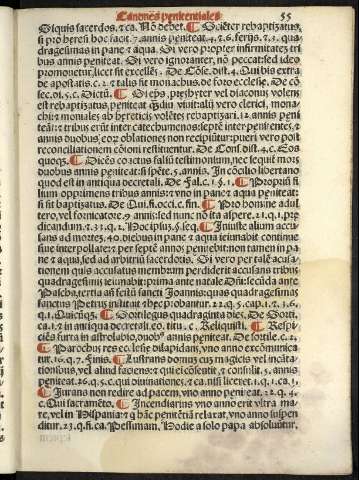 Canones penitentiales 55
Si quis sacerdos. 7 ca. Nō debet. ¶ Sciēter rebaptizatus,
si pro heresi hoc facit. 7. annis peniteat. 4. 7. 6. ferijs. 7. 3. qua
dragesimas in pane 7 aqua. Si vero propter infirmitatē tri
bus annis peniteat. Si vero ignoranter, nō peccat: sed ideo
promouetur, licet sit excellēs. De Cōse. dist. 4. Qui bis extra
de apostatis. c. 2. 7 talis fit monachus, de foro ecclesie. De cō
sec. di. 5. c. Dictū. ¶ Si eps, presbyter vel diaconus volens
est rebaptizatus, peniteat quādiu vixit: alij vero clerici, mona
chi: 7 moniales ab hereticis volētes rebaptizari. 12. annis peni
teāt: 7 tribus erūt inter catechumenos: septē inter penitentes, 7
annis duobus, eorum oblationes non recipiūtur: pueri vero post
reconciliationem cōioni restituentur. De Consē. dist. 4. c. Eos
quos. ¶ Dicēs coactus falsū testimonium, nec sequit mors
duobus annis peniteat: si spōte. 5. annis. In cōcilio libertano
quod est in antiqua decretali. De Fal. c. 1. §. 1. ¶ Proprium fi
lium opprimens tribus annis: 7 vno in pane 7 aqua peniteat:
si sit baptizatus. De Qui. fi. occi. c. fin. ¶ Pro homine adul
tero, vel fornicatore. 9. annis: sed nunc nō ita aspere. 21. q. 1. pre
dicandum. 7. 31. q. 2. Hoc ipsum, §. seq. ¶ Iniuste alium accu
sans ad mortē, 40. diebus in pane 7 aqua ieiunabit continue
siue interpollate: 7 per septē annos penitebit non tamen in pa
ne 7 aqua, sed ad arbitriū sacerdotis. Si vero per talē accusa
tionem quis accusatus membrum perdiderit accusans tribus
quadragesimis ieiunabit: prima ante natale Dñi: secūda ante
Pascha, tertia añ festū sancti Joannis: quas quadragesimas
sanctus Petrus instituit 7 hec probantur. 22. q. 5. cap. 1. 2. 3. 6.
q. 1. Quicūqz. ¶ Sortilegus quadraginta dies. De Sorti.
ca. 1. 7 in antiqua decretali. eo. titu. c. Reliquisti. ¶ Respi
ciēs furta in astrolabio, duobus annis peniteat. De sortile. c. 2.
¶ Parochus res ecclesie dilapidans, vno anno excōmunica
tur. 16. q. 7. finiu. ¶ Lustrans domum cum magicis vel incāta
tionibus, vel aliud faciens: 7 qui ei cōsentit, 7 consulit. 5. annis
peniteat. 26. q. 5. c. qui diuinationes. 7 ca. nisi liceret. 1. q. 1. ca. 1.
¶ Jurans non redire ad pacem, vno anno peniteat. 22. q. 4.
c. Qui sacramēto. ¶ Incendiarius vno anno erit vltra ma
re, vel in Hispania: 7 qui hanc penitētiā relaxat, vno anno suspen
ditur. 23. q. fi. ca. Pessimam. Hodie a solo papa absoluitur.